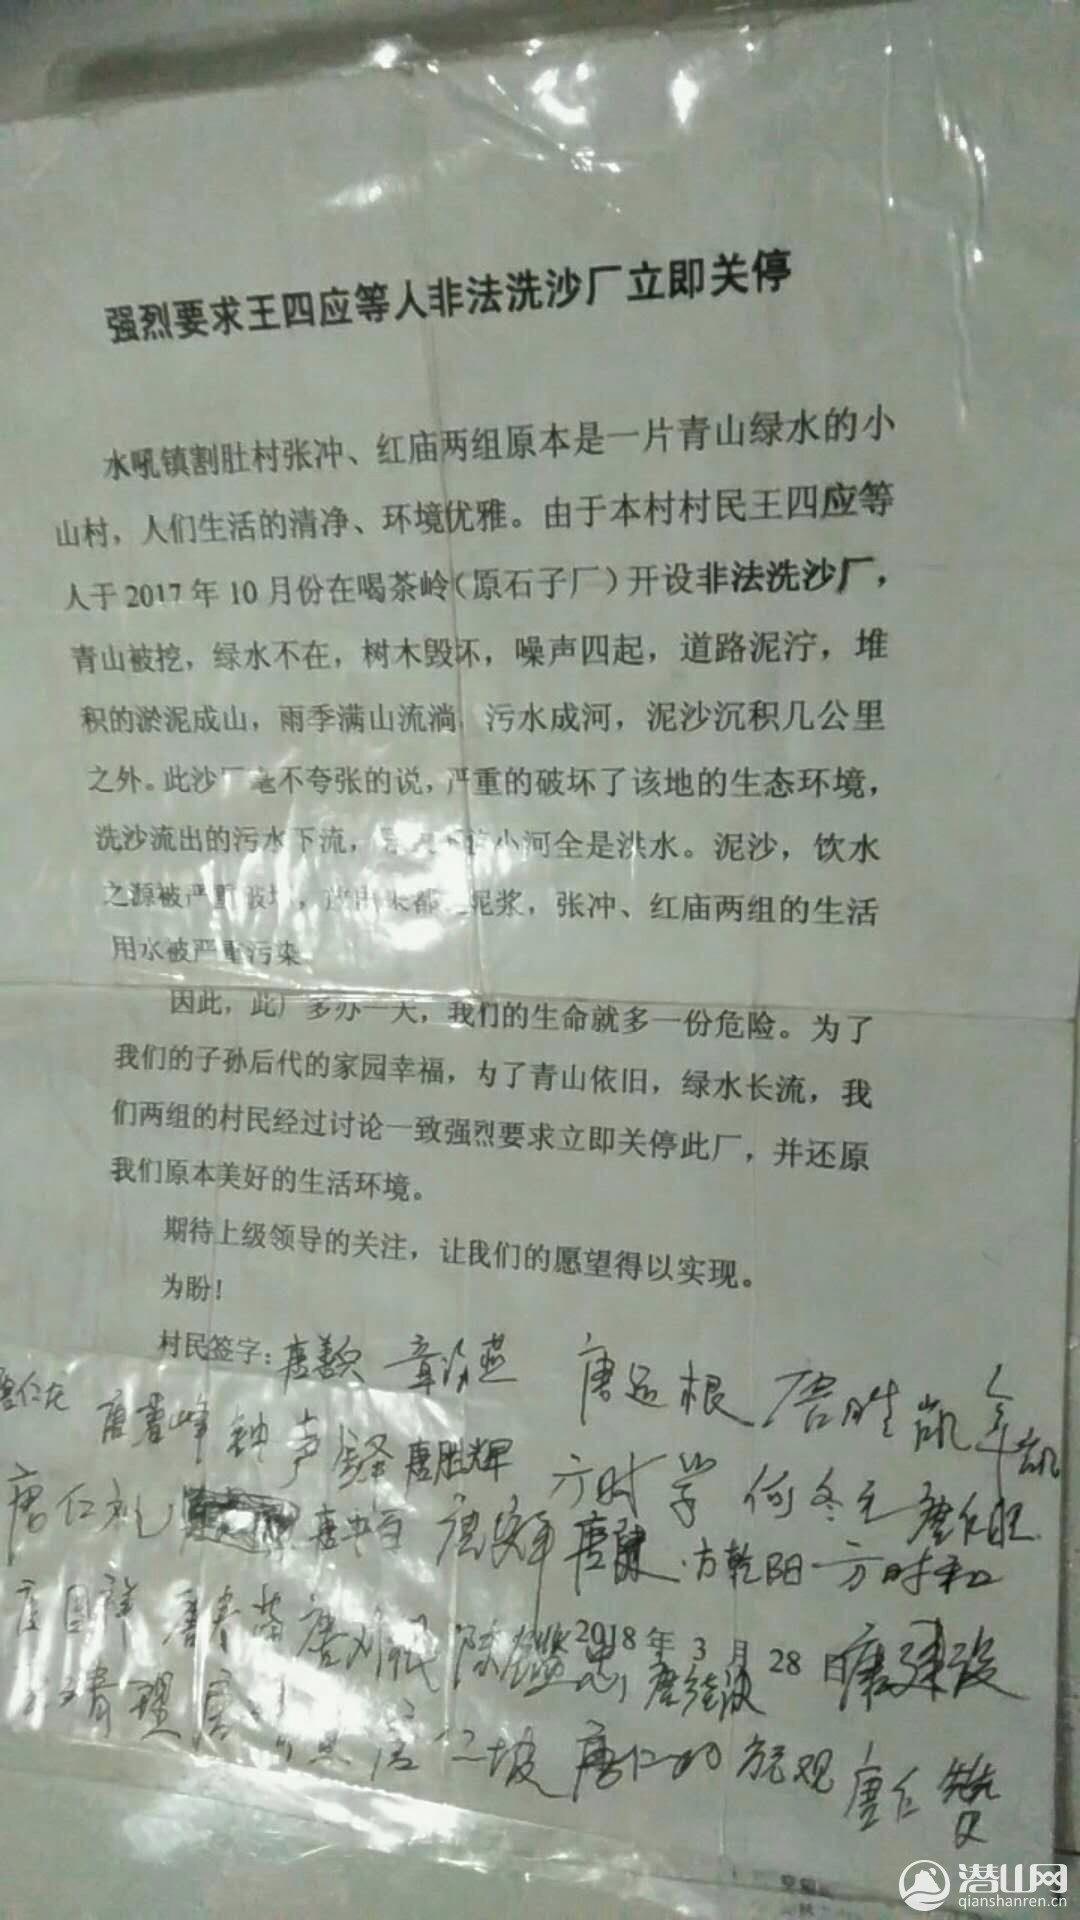 强烈要求王四应等人非法洗沙厂立即关停
水吼镇割肚村张冲、红庙两组原本是一片青山绿水的小
山村，人们生活的清净、环境优雅。由于本村村民王四应等
人于2017年10月份在喝茶岭（原石子厂）开设非法洗沙厂，
青山被挖，绿水不在，树木毁坏，噪声四起，道路泥泞，堆
积的淤泥成山，雨季满山流淌，污水成河，泥沙沉积几公里
之外。此沙厂毫不夸张的说，严重的破坏了该地的生态环境，
洗沙流出的污水下流，小河全是洪水。泥沙，饮水
之源被严重破坏，都泥浆，张冲、红庙两组的生活
用水被严重污染
因此，此厂多办一天，我们的生命就多一份危险。为了
我们的子孙后代的家园幸福，为了青山依旧，绿水长流，我
们两组的村民经过讨论一致强烈要求立即关停此厂，并还原
我们原本美好的生活环境。
期待上级领导的关注，让我们的愿望得以实现。
为盼！
村民签字：唐 章 燕 唐远根 唐胜凯
唐仁龙 唐雪峰 钟声 唐胜辉 方时学 何冬元
唐仁礼 唐 方乾阳 方时和
唐国祥 唐 陈 忠 2018年3月28日 唐建设
唐仁 唐仁
潜山网
qianshanren.cn